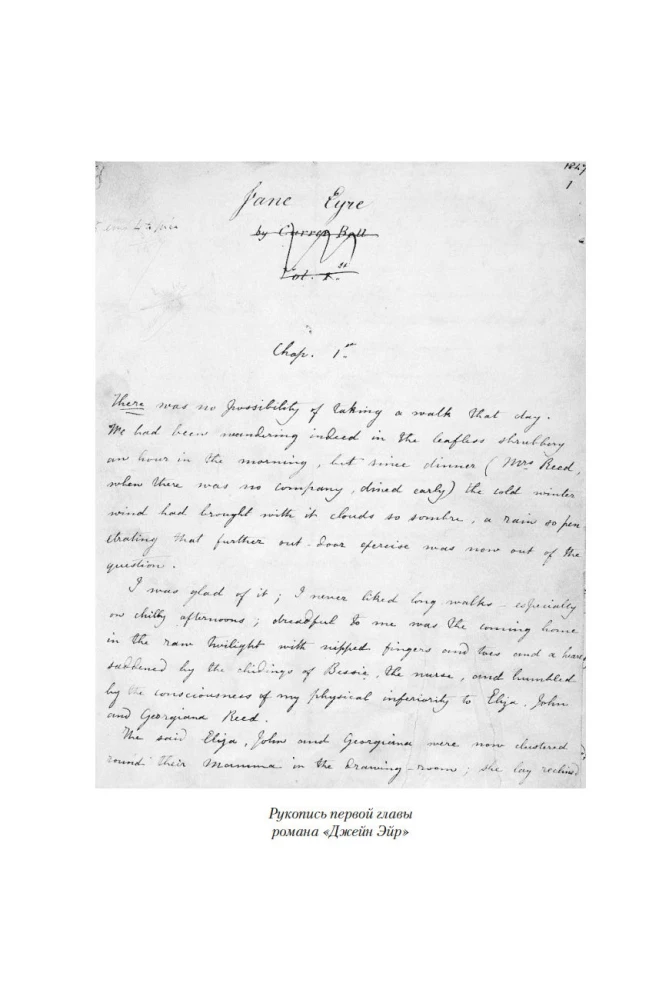 1847
1
Jane Eyre
by Currer Bell
Vol. 1.st
Chap. 1st
There was no possibility of taking a walk that day.
We had been wandering indeed in the leafless shrubbery
an hour in the morning, but since dinner (Mrs Reed,
when there was no company, dined early) the cold winter
wind had brought with it clouds so sombre, a rain so pen-
etrating that further out-door exercise was now out of the
question.
I was glad of it; I never liked long walks - especially
on chilly afternoons; dreadful to me was the coming home
in the raw twilight with nipped fingers and toes and a heart
saddened by the chidings of Bessie, the nurse, and humbled
by the consciousness of my physical inferiority to Eliza, John
and Georgiana Reed.
The said Eliza, John and Georgiana were now clustered
round their Mamma in the drawing-room; she lay reclined
Рукопись первой главы
романа «Джейн Эйр»